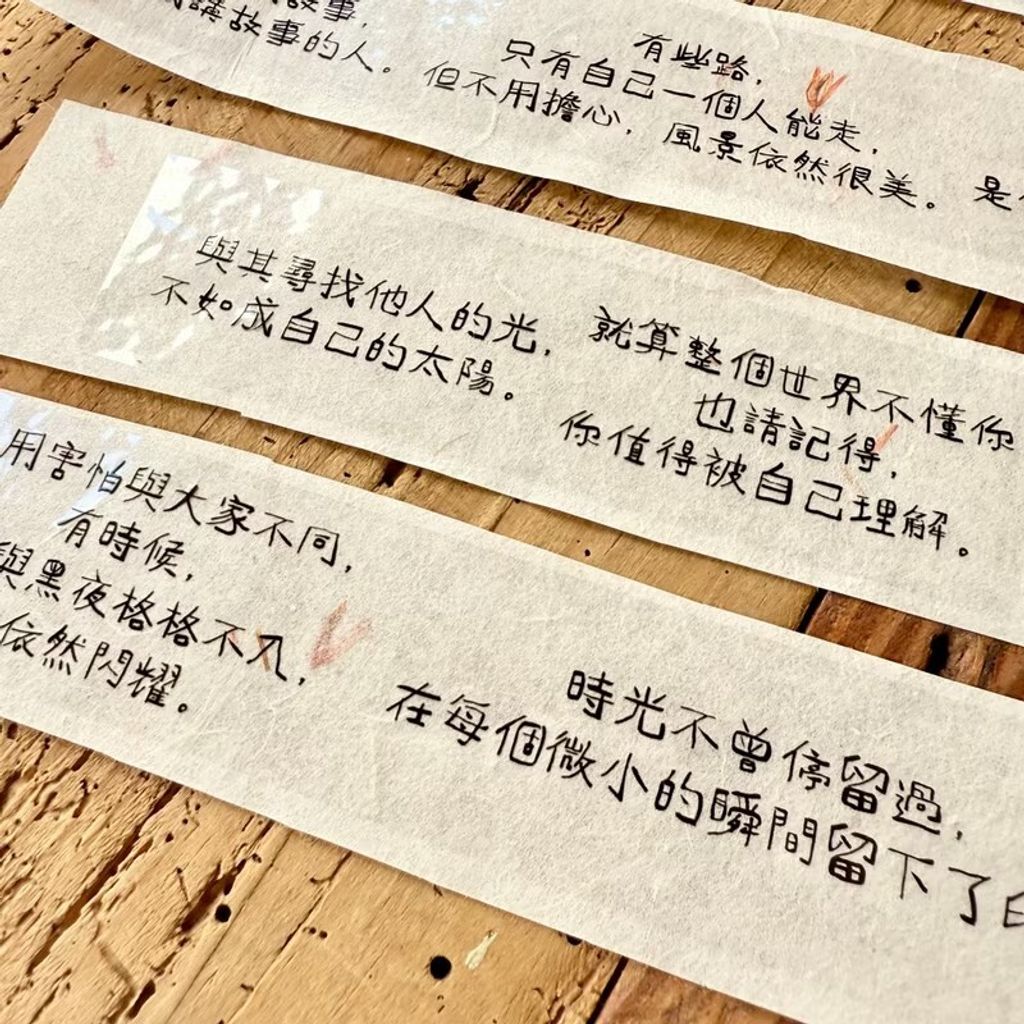 故事,
講故事的人。
有些路,
只有自己一個人能走,
但不用擔心,風景依然很美。
是
與其尋找他人的光,
不如成自己的太陽。
就算整個世界不懂你
也請記得,
你值得被自己理解。
用害怕與大家不同,
有時候,
與黑夜格格不入,
依然閃耀。
時光不曾停留過,
在每個微小的瞬間留下了